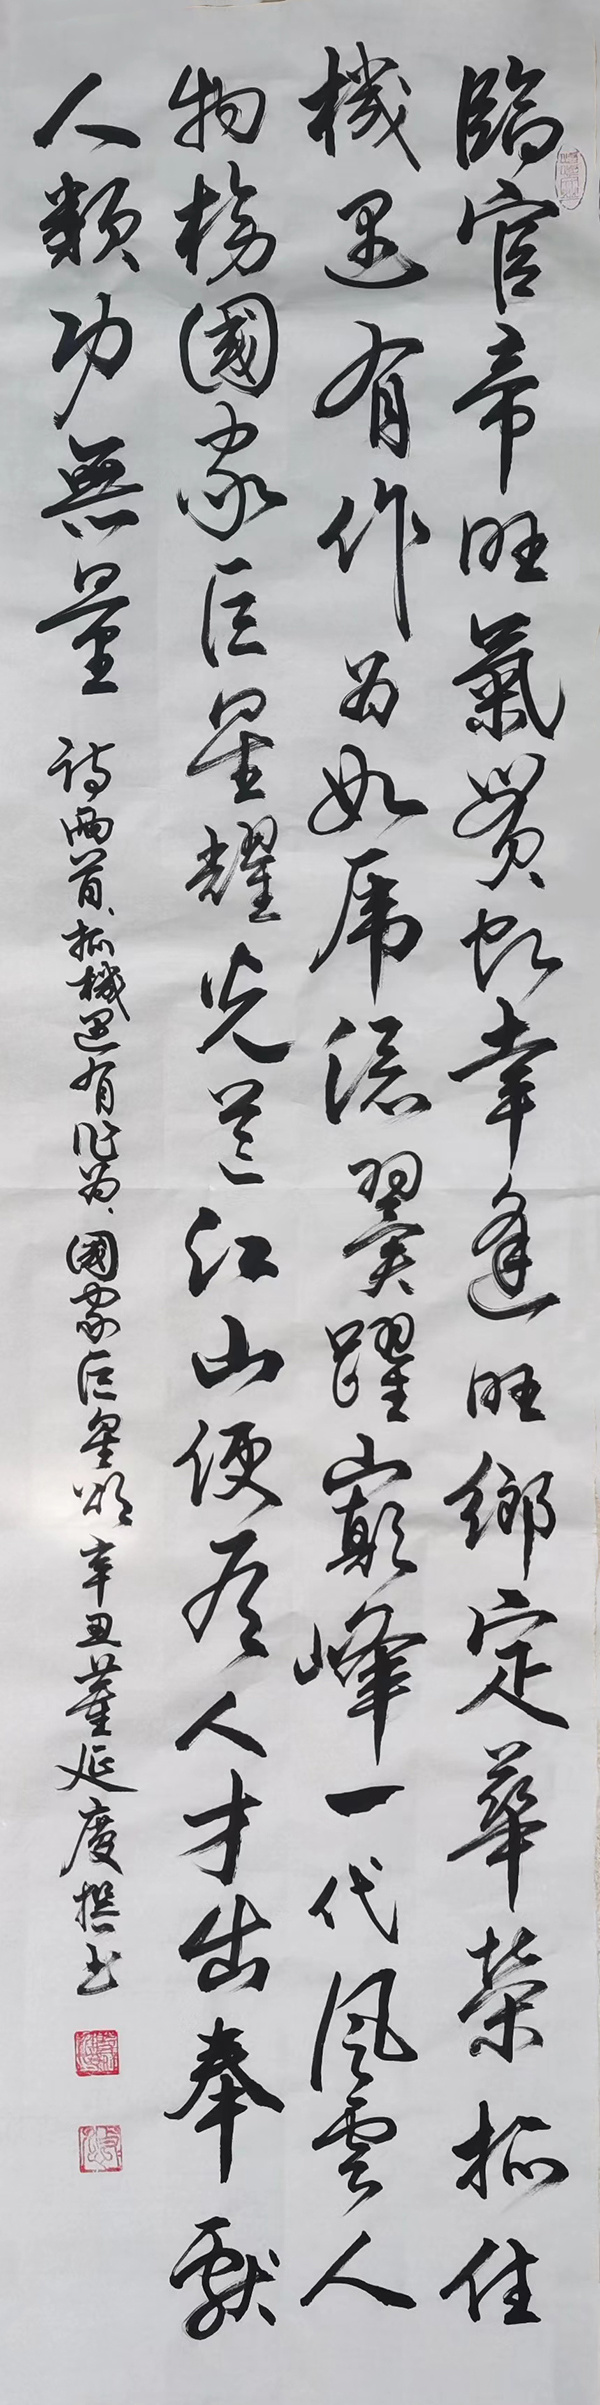 臨官帝旺氣貫虹幸逢旺鄉定華榮抓住
機遇有作为如虎添翼躍巔峰一代風雲人
物榜國家巨星耀光芒江山便有人才出奉獻
人類功無量
詩兩首、抓機遇有作为、國家巨星頌 辛丑董延慶撰书